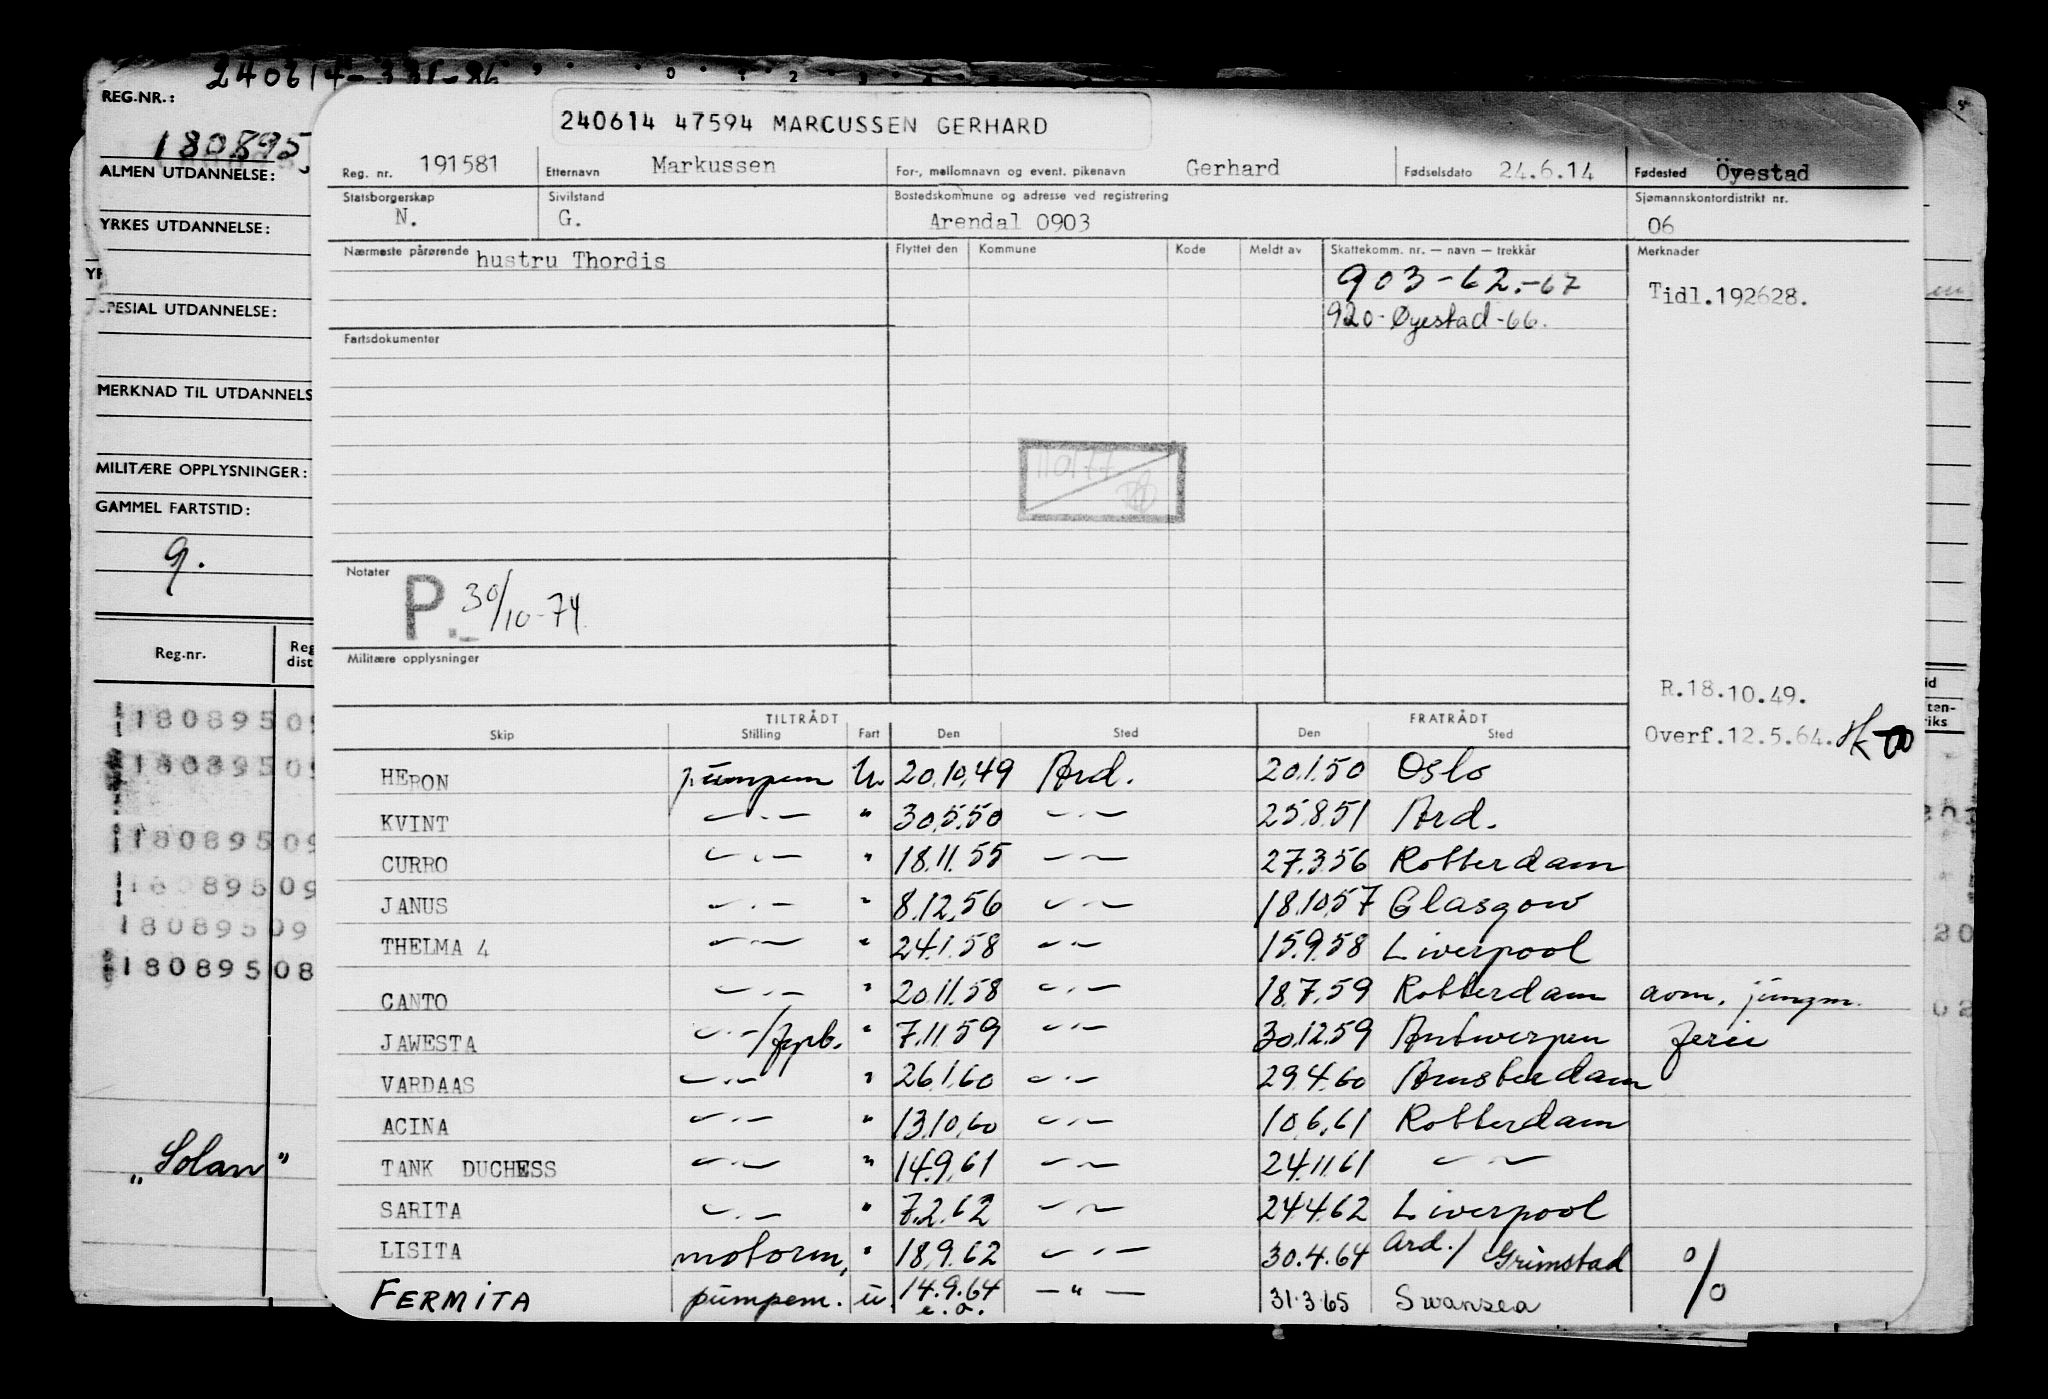 240614
REG.NR.:
180895
ALMEN UTDANNELSE:
YRKES UTDANNELSE:
SPESIAL UTDANNELSE:
MERKNAD TIL UTDANNELS
MILITÆRE OPPLYSNINGER:
GAMMEL FARTSTID:
g.
Reg.nr. Reg dist
180895 09
180895 09
180895 09
180895 09
180895 09
180895 08
"Solan"
240614 47594 MARCUSSEN GERHARD
Reg. nr. 191581 Etternavn Markussen For-, mellomnavn og event. pikenavn Gerhard Fødselsdato 24.6.14 Fødested Öyestad
Statsborgerskap N. Sivilstand G. Bostedskommune og adresse ved registrering Arendal 0903 Sjømannskontordistrikt nr. 06
Nærmeste pårørende hustru Thordis Flyttet den Kommune Kode Meldt av Skattekomm. nr. — navn — trekkår Merknader
903-62.-67
920-Øyestad-66.
Tidl.192628.
Fartsdokumenter
Notater
P. 30/10-74.
Militære opplysninger
R.18.10.49.
Overf.12.5.64.
TILTRÅDT FRATRÅDT
Skip Stilling Fart Den Sted Den Sted
HERON pumpem U. 20.10.49 Ard. 20.1.50 Oslo
KVINT —.— " 30.5.50 —.— 25.8.51 Ard.
CURRO —.— " 18.11.55 —.— 27.3.56 Rotterdam
JANUS —.— " 8.12.56 —.— 18.10.57 Glasgow
THELMA 4 —.— " 24.1.58 —.— 15.9.58 Liverpool
CANTO —.— " 20.11.58 —.— 18.7.59 Rotterdam aom. jungm.
JAWESTA —.—/fyrb. " 7.11.59 —.— 30.12.59 Antwerpen ferie
VARDAAS —.— " 26.1.60 —.— 29.4.60 Amsterdam
ACINA —.— " 13.10.60 —.— 10.6.61 Rotterdam
TANK DUCHESS —.— " 14.9.61 —.— 24.11.61 —.—
SARITA —.— " 7.2.62 —.— 24.4.62 Liverpool
LISITA motorm, " 18.9.62 —.— 30.4.64 Ard./Grimstad %
FERMITA pumpem. u. 14.9.64 e.o. —"— 31.3.65 Swansea